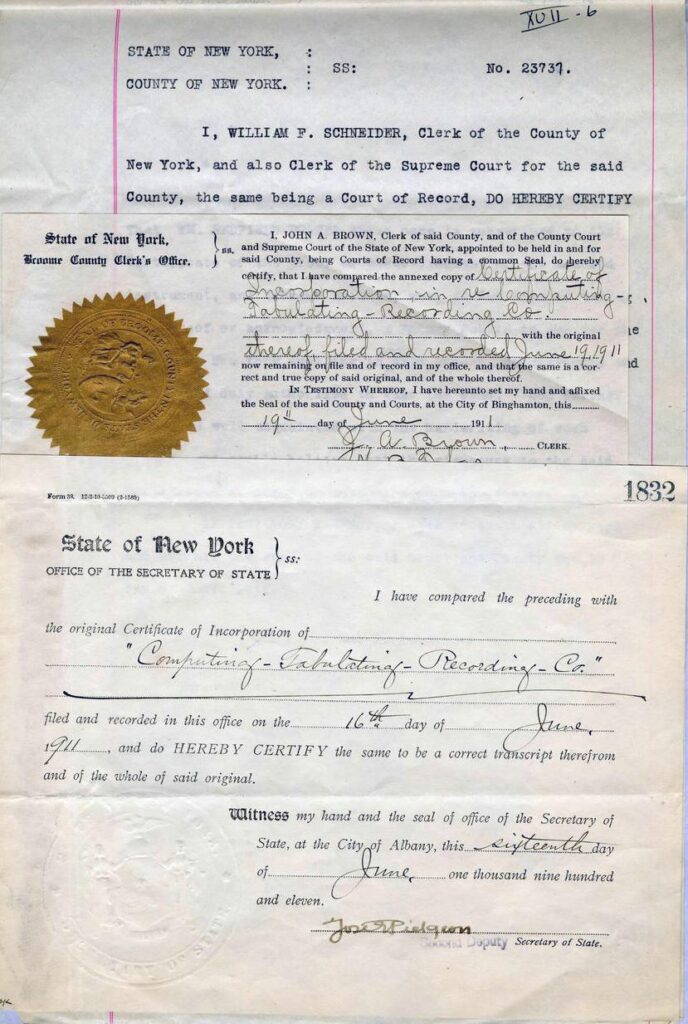 XVII - 6
STATE OF NEW YORK, :
: SS: No. 23737.
COUNTY OF NEW YORK. :
I, WILLIAM F. SCHNEIDER, Clerk of the County of
New York, and also Clerk of the Supreme Court for the said
County, the same being a Court of Record, DO HEREBY CERTIFY
State of New York, } ss.
Broome County Clerk's Office.
I, JOHN A. BROWN, Clerk of said County, and of the County Court
and Supreme Court of the State of New York, appointed to be held in and for
said County, being Courts of Record having a common Seal, do hereby
certify, that I have compared the annexed copy of Certificate of
Incorporation in re Computing-
Tabulating-Recording Co.
with the original
thereof, filed and recorded June 19, 1911
now remaining on file and of record in my office, and that the same is a cor-
rect and true copy of said original, and of the whole thereof.
IN TESTIMONY WHEREOF, I have hereunto set my hand and affixed
the Seal of said County and Courts, at the City of Binghamton, this
19th day of June 1911
J. A. Brown, CLERK.
Form 38.
1832
State of New York } ss:
OFFICE OF THE SECRETARY OF STATE
I have compared the preceding with
the original Certificate of Incorporation of
"Computing-Tabulating-Recording-Co."
filed and recorded in this office on the 16th day of June,
1911, and do HEREBY CERTIFY the same to be a correct transcript therefrom
and of the whole of said original.
Witness my hand and the seal of office of the Secretary of
State, at the City of Albany, this sixteenth day
of June, one thousand nine hundred
and eleven.
Jose E Pidgeon
Second Deputy Secretary of State.